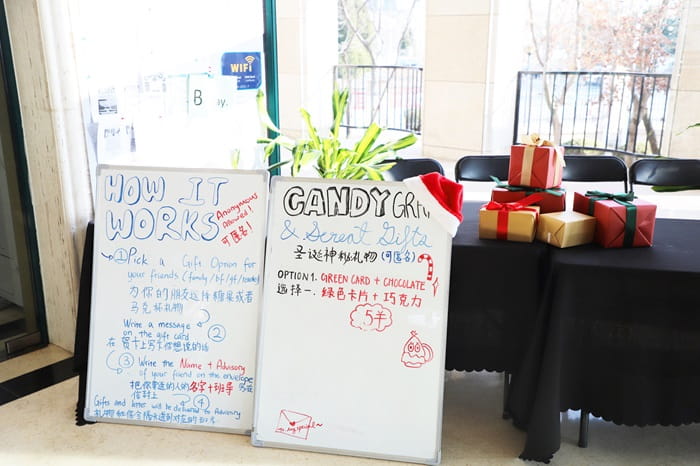 WiFi
HOW IT
WORKS
Anonymous
Allowed!
可匿名!
① Pick a Gift Option for
your friends (family/bf/gf/
为你的朋友选择糖果或者
马克杯礼物
Write a message ②
on the gift card
在贺卡上写下你想说的话
③ Write the Name + Advisory
of your friend on the envelope
把你拿送的人的名字+班导写在
信封上 ④
Gifts and letter will be delivered to Advisory
CANDY GRAM
& Secret Gifts
圣诞神秘礼物 (可匿名)
OPTION 1. GREEN CARD + CHOCOLATE
选择一. 绿色卡片 + 巧克力
5羊